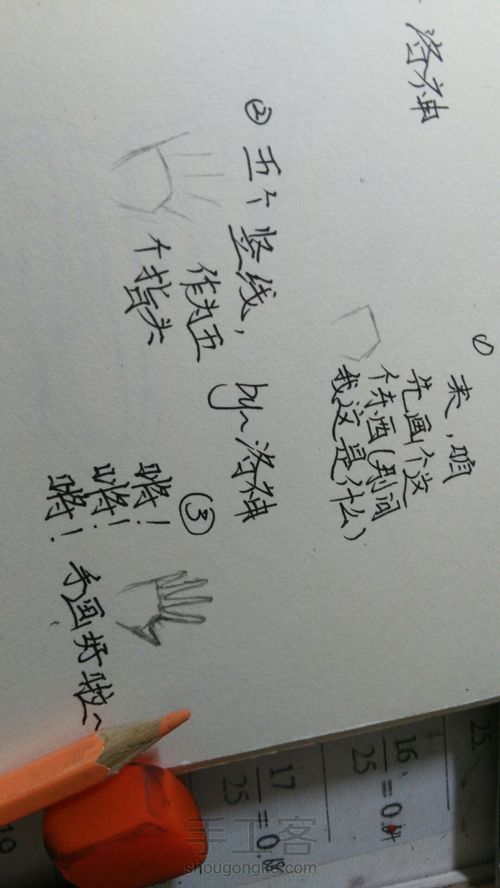 洛神
①
来,咱
先画个这
个东西(别问
我这是什么)
② 五个竖线,
作为五
个指头
by~洛神
③
手画好啦~
16
25
= 0.
17
25
= 0.68
25
手工客
shougongke.com